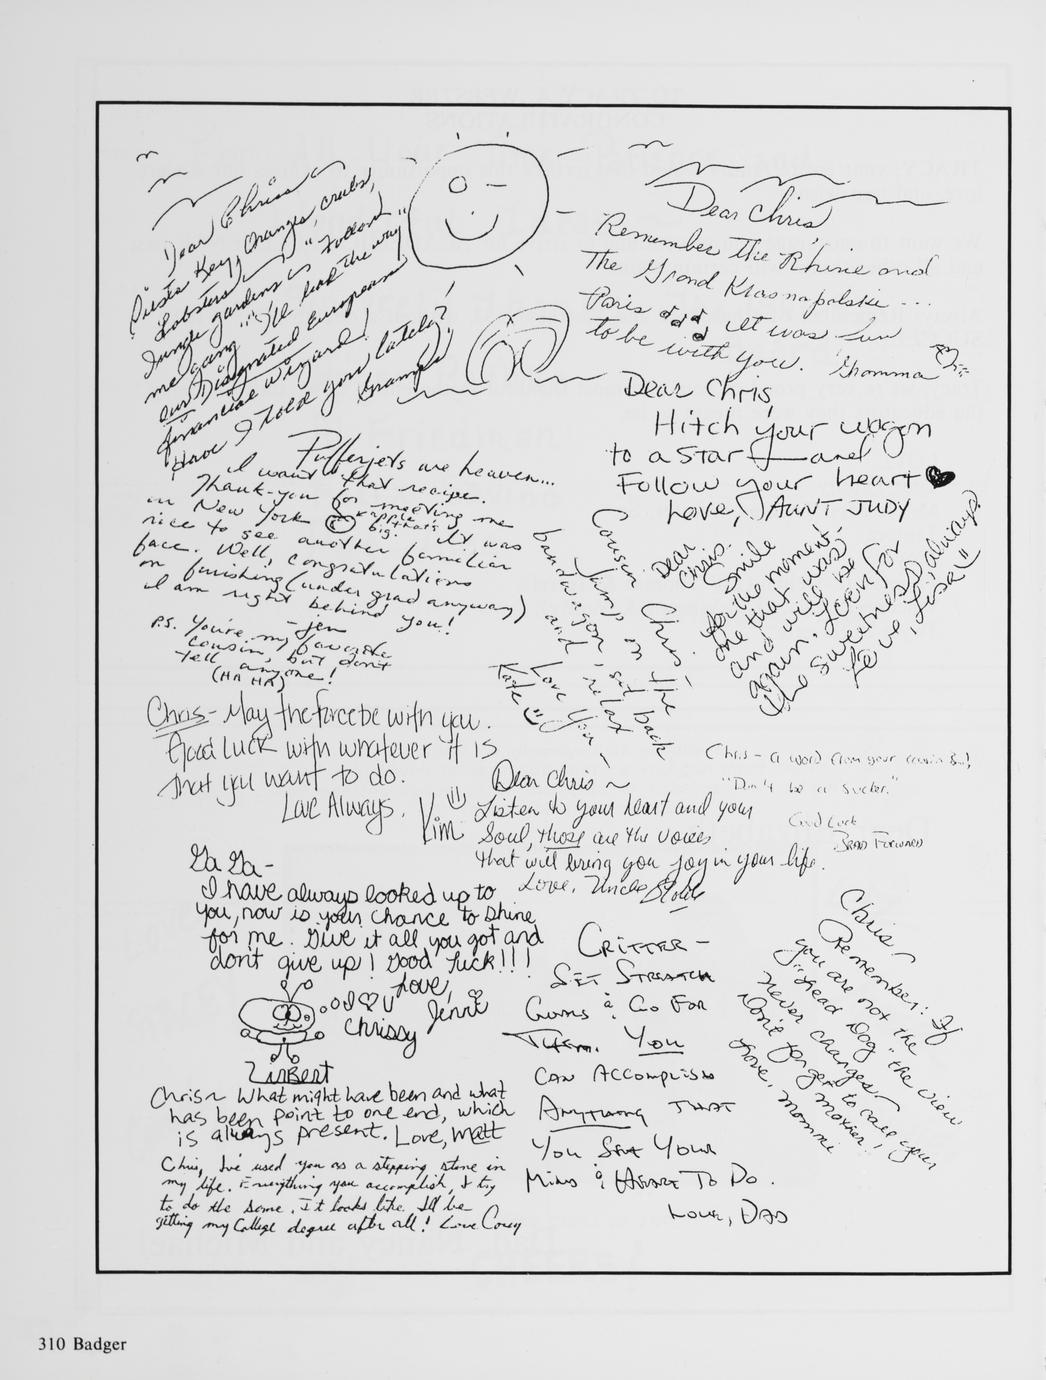 Dear Chris
Siesta Key, Oranges, crabs,
Lobsters
Jungle gardens "Follow
me gang" "I'll lead the way"
our Designated European
financial wizard!
Have I told you lately?
Gramps
Dear Chris
Remember The Rhine and
The Grand Krasnapolski ...
Paris It was fun
to be with you. Gramma
Dear Chris,
Hitch your wagon
to a star and
Follow your heart
Love, AUNT JUDY
Pufferjets are heaven...
I want that recipe.
Thank-you for meeting me
in New York apple that's big. It was
nice to see another familiar
face. Well, congratulations
on finishing (undergrad anyway)
I am right behind you!
-Jen
P.S. You're my favorite
cousin, but don't
tell anyone!
(HA HA)
Cousin Chris -
Jump on the
bandwagon, sit back
and relax
Love You -
Kate
Dear
Chris.
Smile
for the moment,
one that was
and will be
again. Look for
the sweetness, always!
Love, Lisa
Chris - May the force be with you.
Good Luck with whatever it is
that you want to do.
Love Always,
Kim
Chris - a word from your cousin
"Don't be a sucker."
Good Luck
BRAD FORWARD
Dear Chris ~
Listen to your heart and your
Soul, those are the voices
that will bring you joy in your life.
Love, Uncle
Ga Ga -
I have always looked up to
you, now is your chance to shine
for me. Give it all you got and
don't give up! Good luck!!!
Love,
Jenni
I ♡ U
Chrissy
Zinbert
CRITTER -
SET STRETCH
GOALS & GO FOR
THEM. YOU
CAN ACCOMPLISH
ANYTHING THAT
YOU SET YOUR
MIND & HEART TO DO.
LOVE, DAD
Chris ~
Remember: If
you are not the
"Lead Dog" the view
never changes ~
Don't forget to call your
mother!
Love, Mommie
Chris ~ What might have been and what
has been point to one end, which
is always present. Love, Matt
Chris, I've used you as a stepping stone in
my life. Everything you accomplish, I try
to do the same. It looks like I'll be
getting my College degree after all! Love Corey
310 Badger